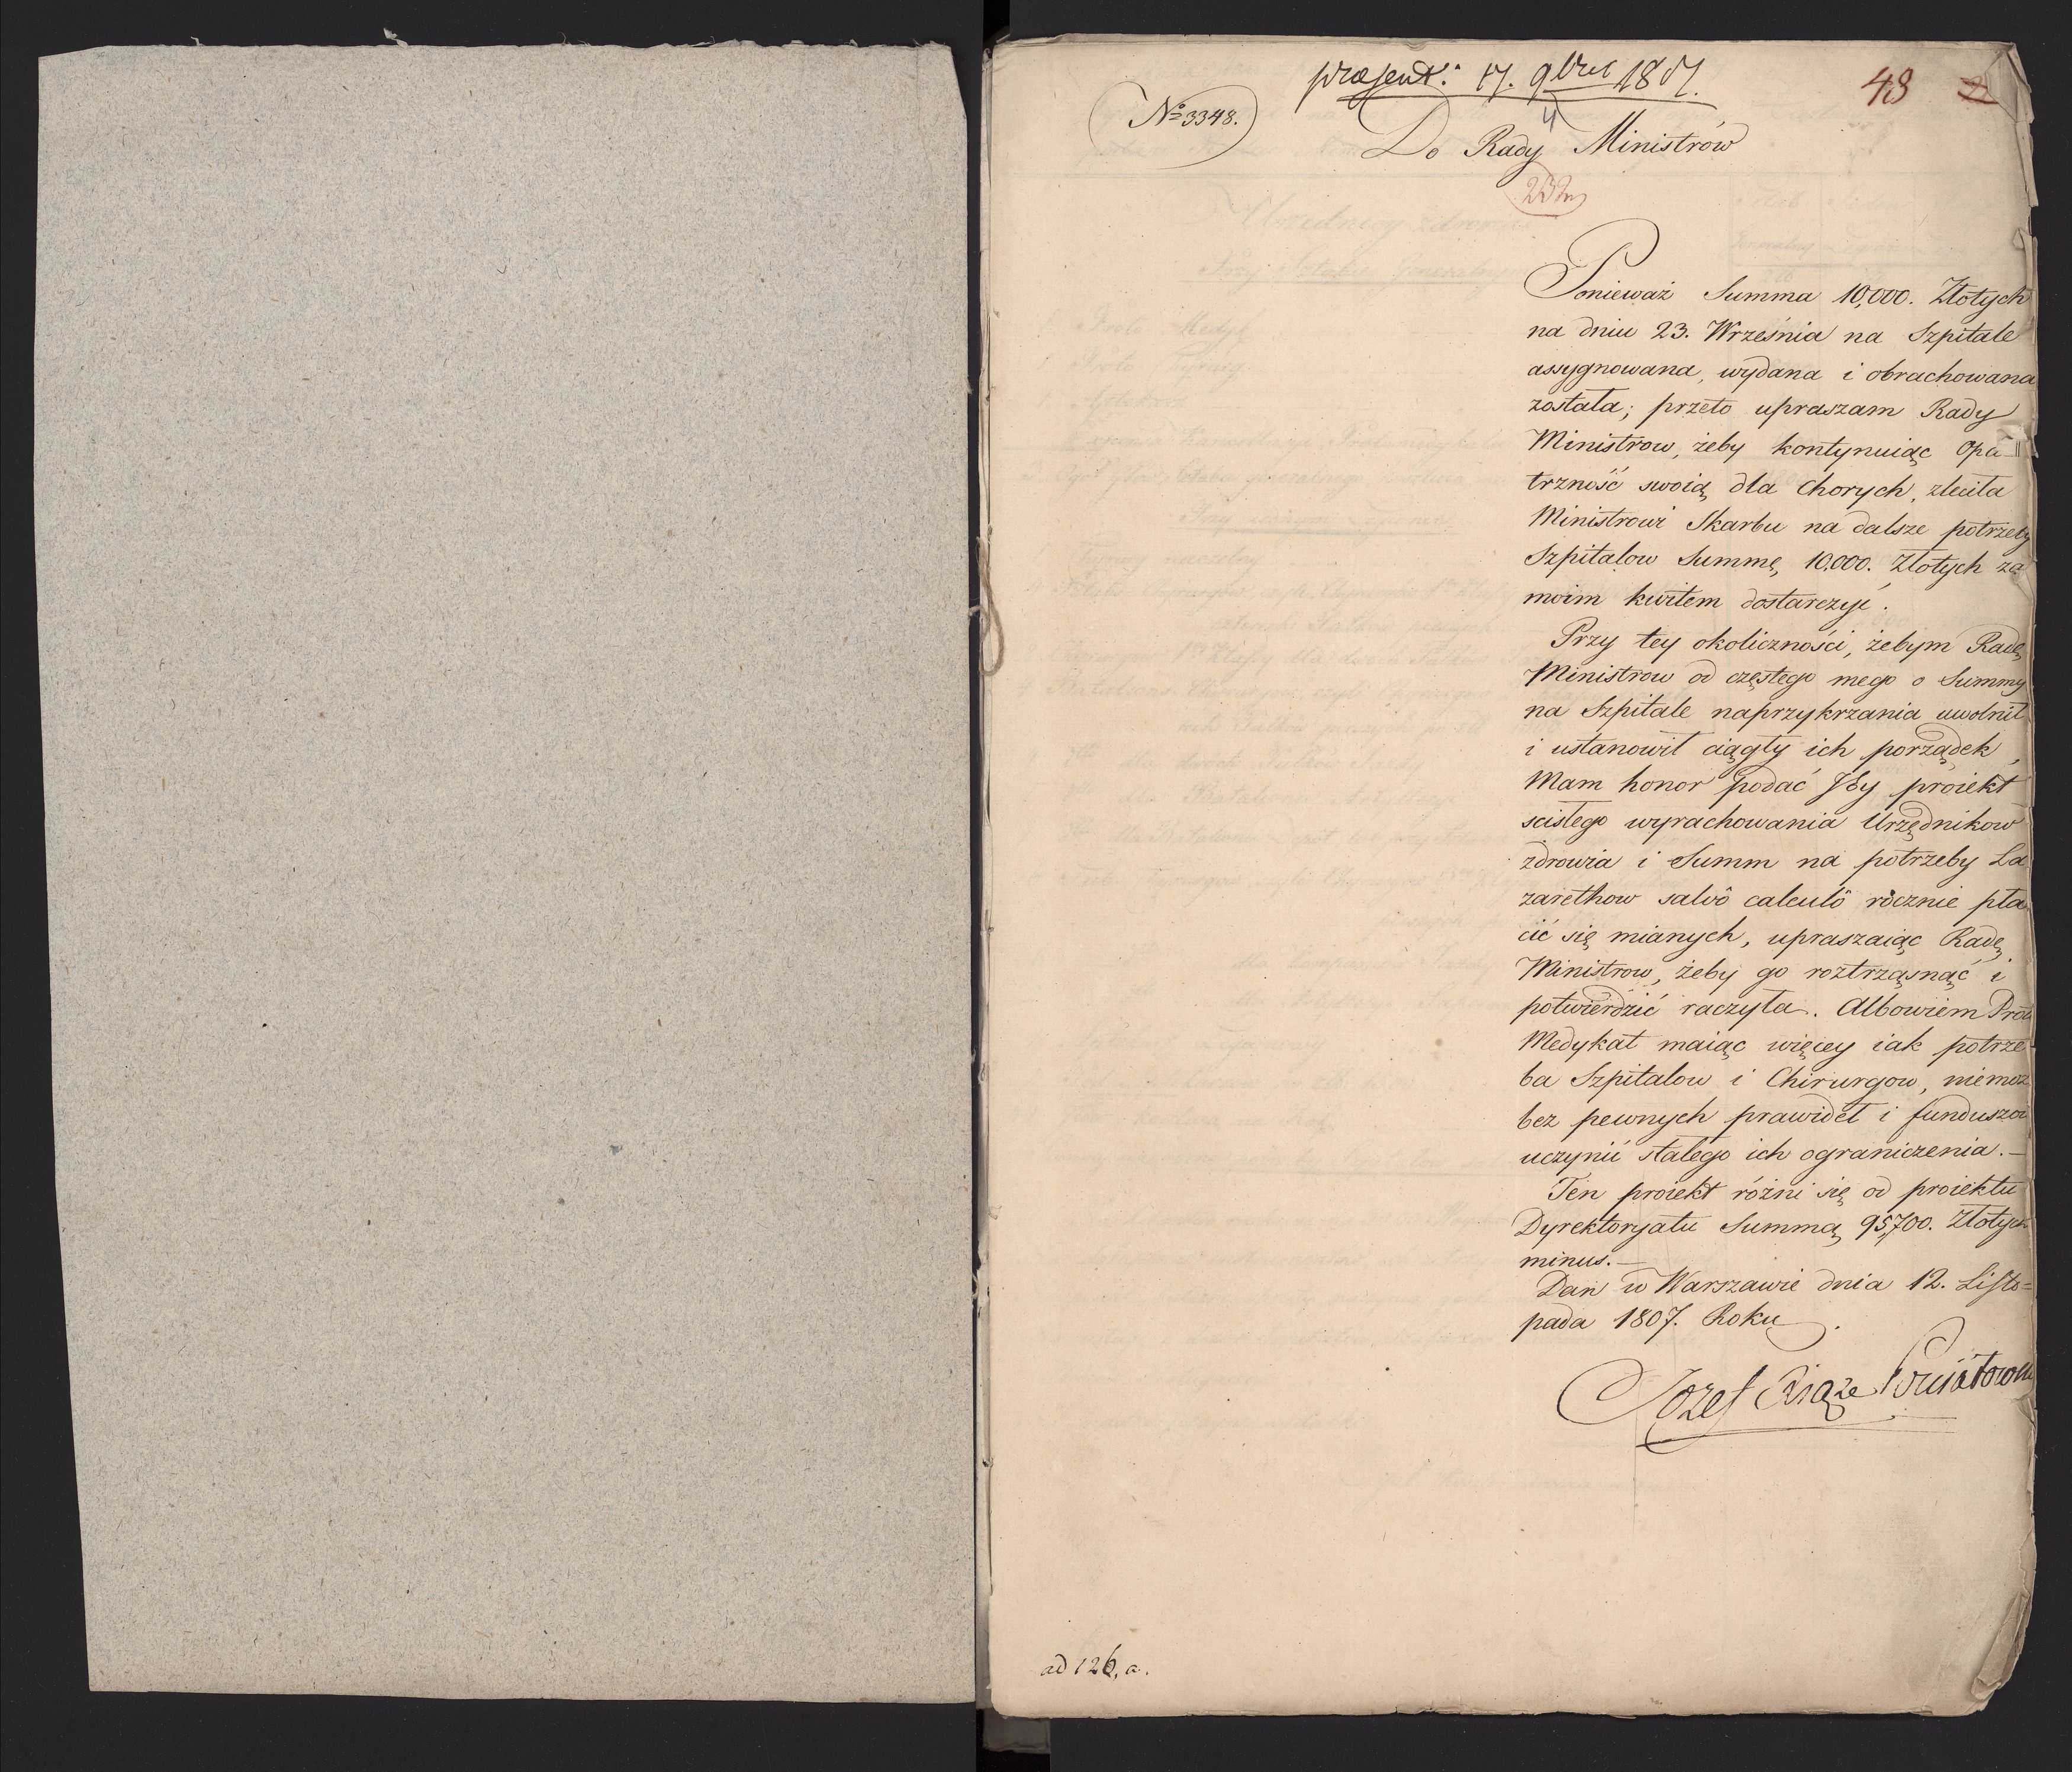 præsent: 17. 9bris 1807.
48
No 3348.
4
Do Rady Ministrów
Ponieważ Summa 10,000. Złotych
na dniu 23. Września na Szpitale
assygnowana, wydana i obrachowana
została; przeto upraszam Rady
Ministrow, żeby kontynuiąc Opa=
trzność swoią dla Chorych, zleciła
Ministrowi Skarbu na dalsze potrzeby
Szpitalow Summę, 10.000. Złotych za
moim kwitem dostarczyć.
Przy tey okoliczności, żebym Radę
Ministrow od częstego mego o Summy
na Szpitale naprzykrzania uwolnił
i ustanowił ciągły ich porządek,
Mam honor podać Jey proiekt
scisłego wyrachowania Urzędnikow
zdrowia i Summ na potrzeby La
zarethow salvô calculô rocznie pła
cić się mianych, upraszaiąc Radę
Ministrow, żeby go roztrząsnąć i
potwierdzić raczyła. Albowiem Proto
Medykat maiąc więcey iak potrze
ba Szpitalow i Chirurgow, niemoż
bez pewnych prawideł i funduszow
uczynić stałego ich ograniczenia.—
Ten proiekt różni się od proiektu
Dyrektoryatu Summą 95,700. Złotych
minus.—
Dan w Warszawie dnia 12. Listo=
pada 1807. Roku.
Jozef Xiąże Poniatowski
ad 126, a.